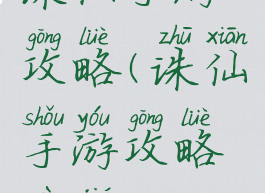 gōng lüè zhū xiān
攻略(诛仙
shǒu yóu gōng lüè
手游攻略